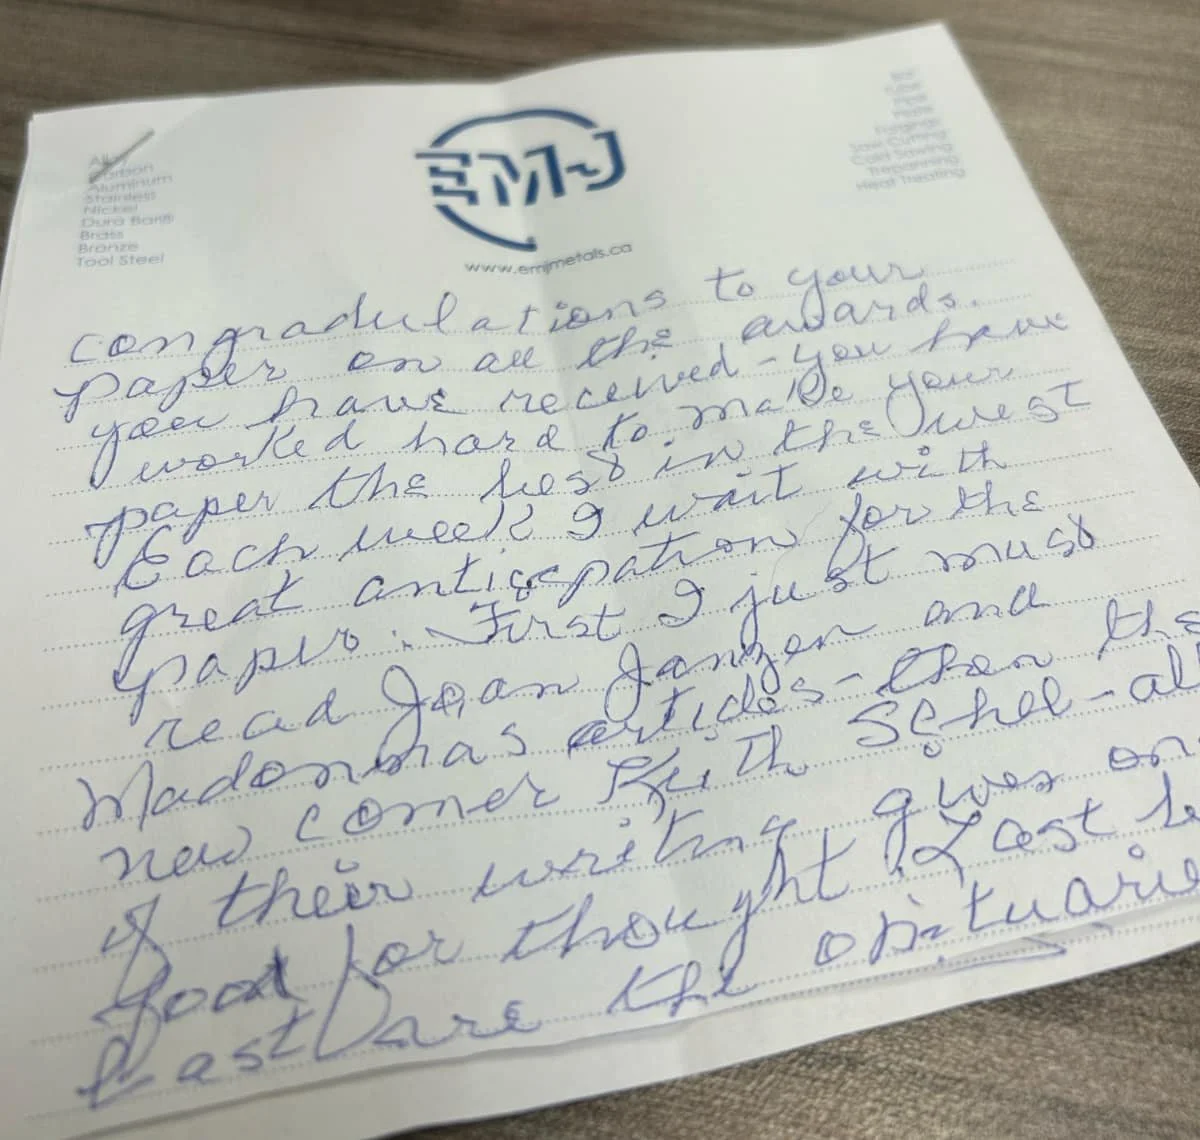 Alloy
Carbon
Aluminum
Stainless
Nickel
Dura Bar®
Brass
Bronze
Tool Steel
EMJ
www.emjmetals.ca
Forgings
Saw Cutting
Cold Sawing
Trepanning
Heat Treating
congradulations to your
paper on all the awards.
you have received - you have
worked hard to make your
paper the best in the west
Each week I wait with
great anticepation for the
paper. First I just must
read Joan Janzen and
Madonnas articles - then the
new comer Keith Schel - all
of their writing gives one
food for thought. Last but
Least are the obituaries